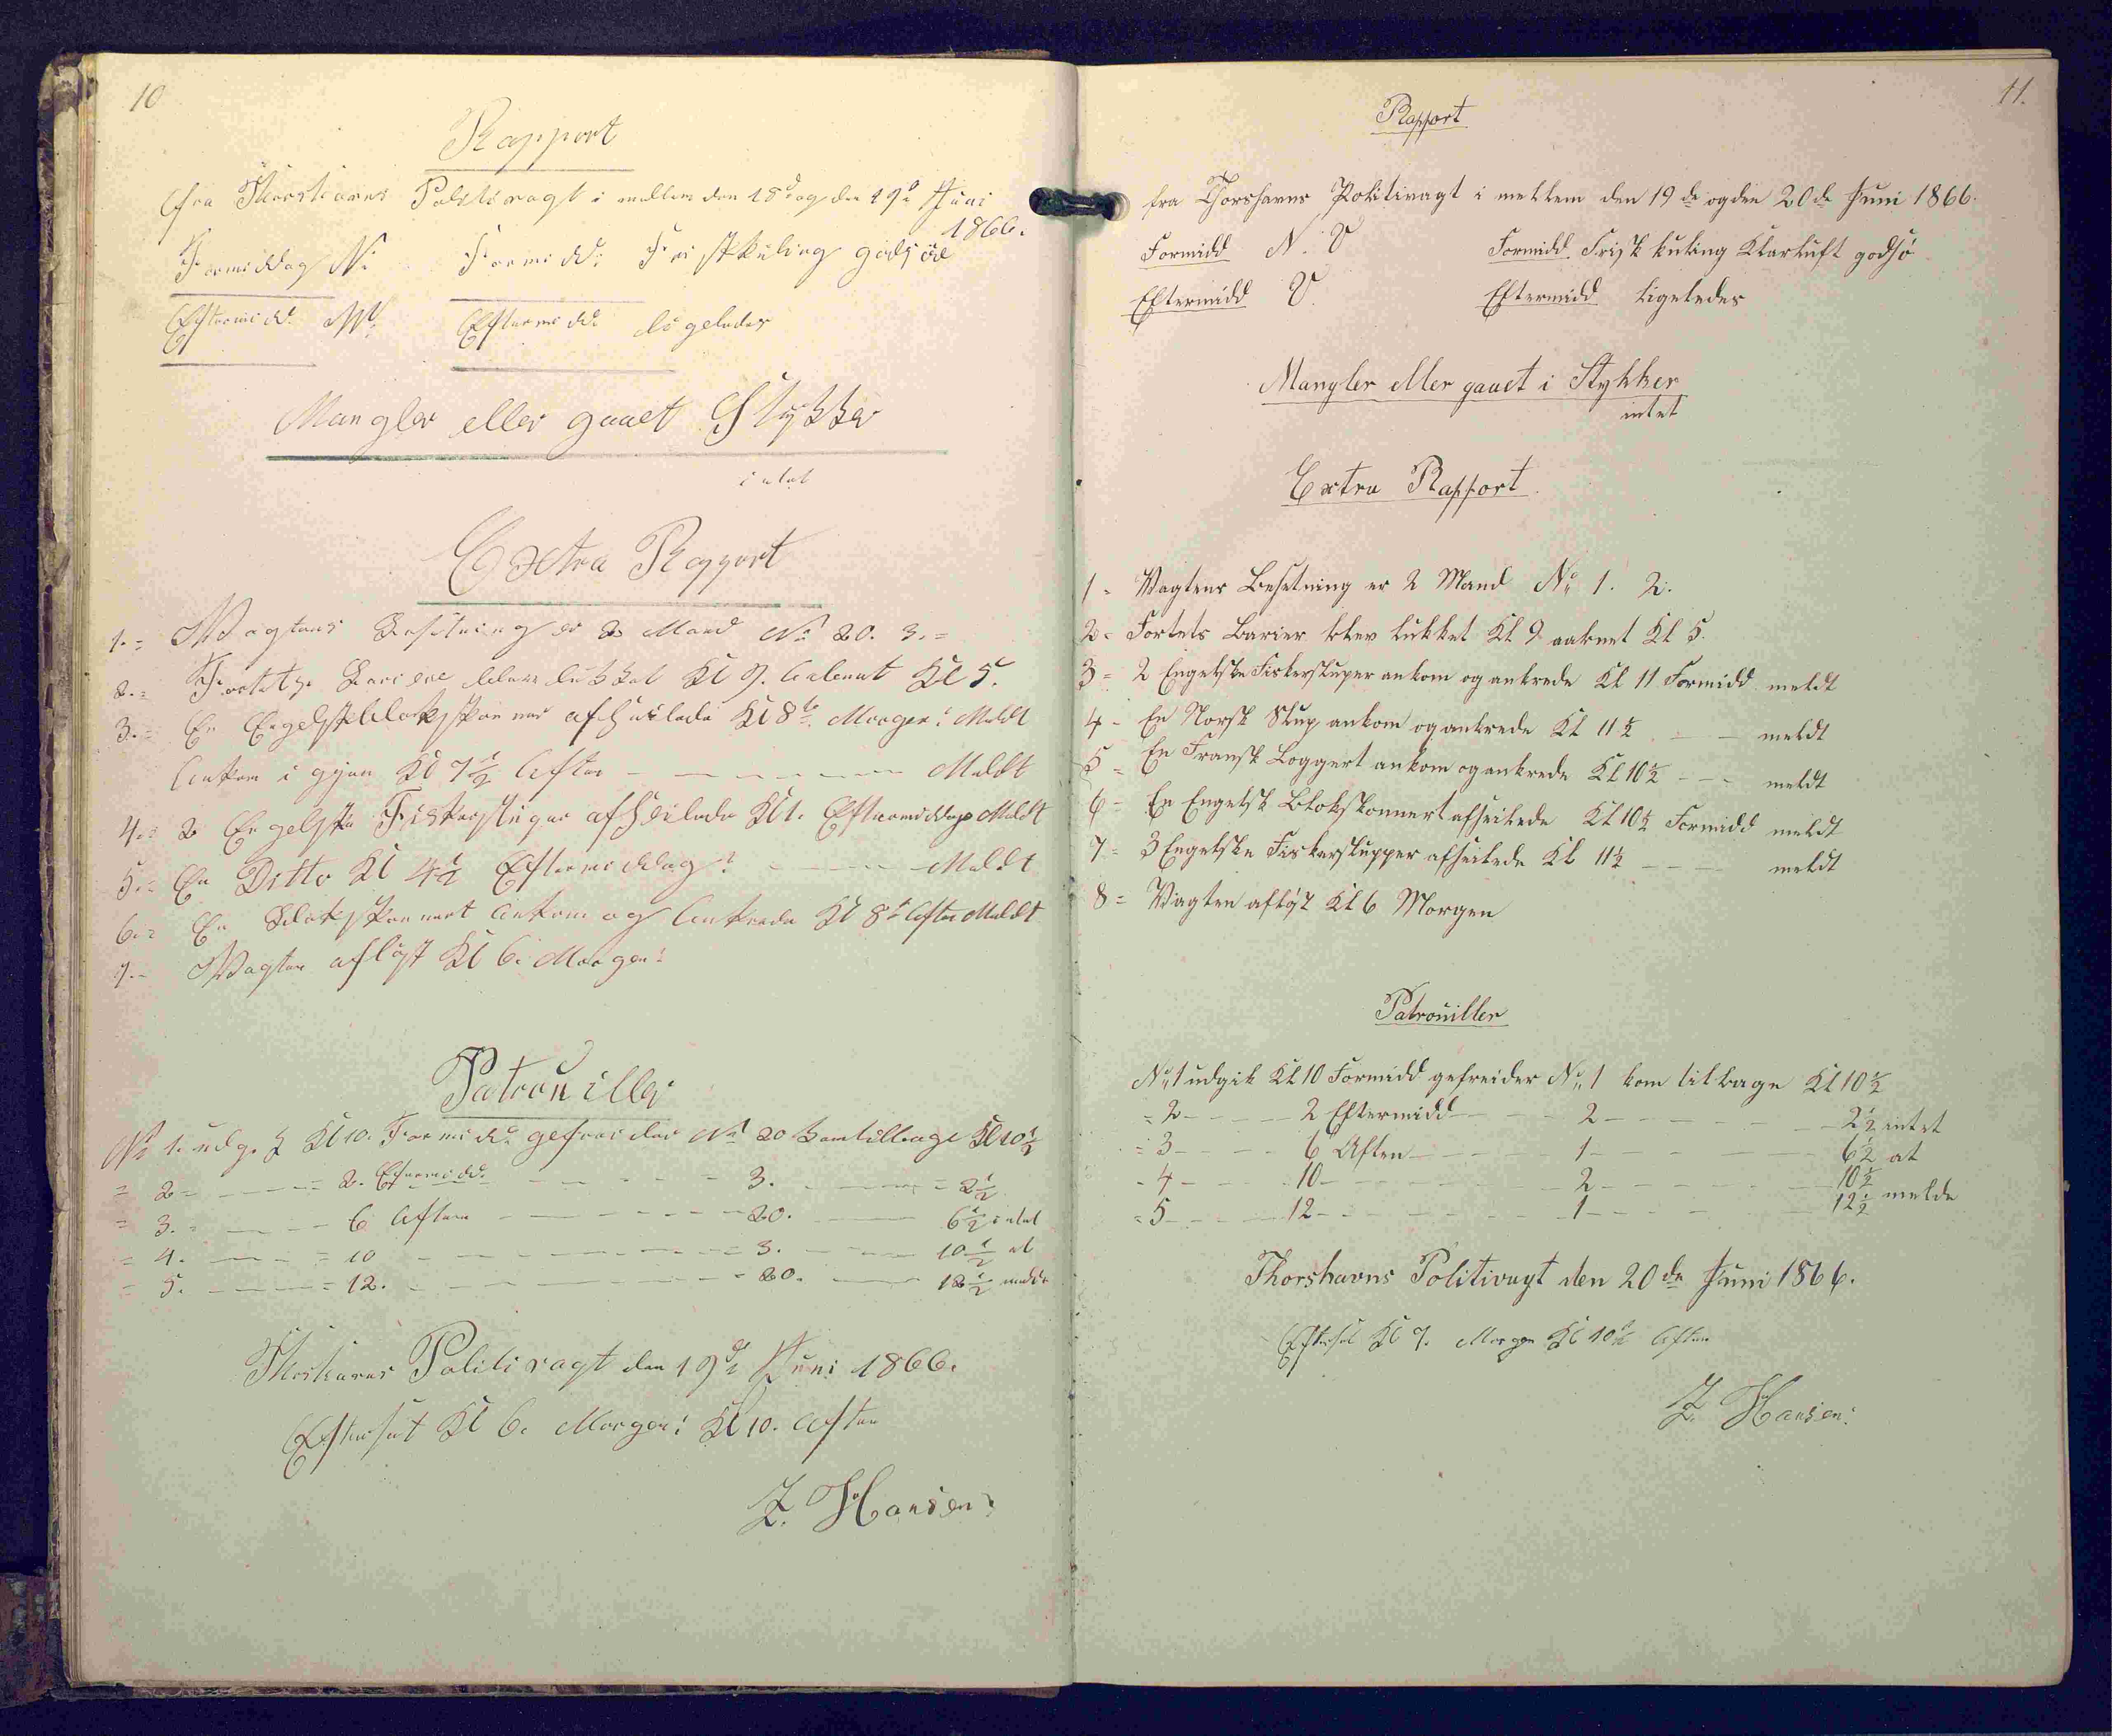 10
Rapport
fra Thorshavns Politivagt i mellem den 18d og den 19d Juni
1866.
Formiddag N. Formidd: Friskkuling godsöe
Eftermidd: Eftermidd: ligeledes
Mangler eller gaaet Stykker
intet
Extra Rapport
1.= Wagtens Besetning er 2 Mand No 20. 3.=
2.= Fortets Bariere blev lukket Kl 9. aabnet Kl 5.
3.= En Engelskblokskonner afseilede Kl 8 Morgen: Meldt
Ankom i gjen Kl 7½ Aften - - - - - Meldt
4.= 2 Engelske Fiskerslupper afseilede Kl 1. Eftermiddag Meldt
5.= En Ditto Kl 4½ Eftermiddag: - - - - Meldt
6.= En Blokskonnert Ankom og Ankrede Kl 8 Aften Meldt
7.= Wagten aflöst Kl 6. Morgen:
Patrouiller
No 1. udg. Kl 10. Formidd: gefreider No 20 kom tilbage Kl 10½
= 2 = - - - = 2. Eftermidd: - - - - 3. - - - = 2½
= 3. = - - - 6 Aften - - - - - 20. - - - 6½ intet
= 4. - - - = 10 - - - - - = 3. - - - 10½ at
= 5. - - - = 12. - - - - - = 20. - - - 12½ melde
Thorshavns Politivagt den 19de Juni 1866.
Eftersat Kl 6. Morgen: Kl 10. Aften
Z. Hansen:
11.
Rapport
fra Thorshavns Politivagt i mellem den 19de og den 20de Juni 1866.
Formidd N. V Formidd. Frisk kuling Klarluft godsø
Eftermidd V. Eftermidd ligeledes
Mangler eller gaaet i Stykker
intet
Extra Rapport
1 = Vagtens Besetning er 2 Mand No 1. 2.
2 = Fortets Barier blev lukket Kl 9 aabnet Kl 5.
3 = 2 Engelske Fiskerslupper ankom og ankrede Kl 11 Formidd meldt
4 - En Norsk Slup ankom og ankrede Kl 11½ - - meldt
5 = En Fransk Loggert ankom og ankrede Kl 10½ - - - meldt
6 = En Engelsk Blokskonnert afseilede Kl 10½ Formidd meldt
7 = 3 Engelske Fiskerslupper afseilede Kl 11½ - - - meldt
8 = Vagten afløst Kl 6 Morgen
Patrouiller
No 1 udgik Kl 10 Formidd gefreider No 1 kom tilbage Kl 10½
= 2 - - - - 2 Eftermidd - - - 2 - - - - - 2½ intet
= 3 - - - - 6 Aften - - - - 1 - - - - - 6½ at
- 4 - - - 10 - - - - - 2 - - - - - 10½
= 5 - - - - 12 - - - - - 1 - - - - - 12½ melde
Thorshavns Politivagt den 20de Juni 1866.
Eftersat Kl 7. Morgen Kl 10½ Aften
Z. Hansen: